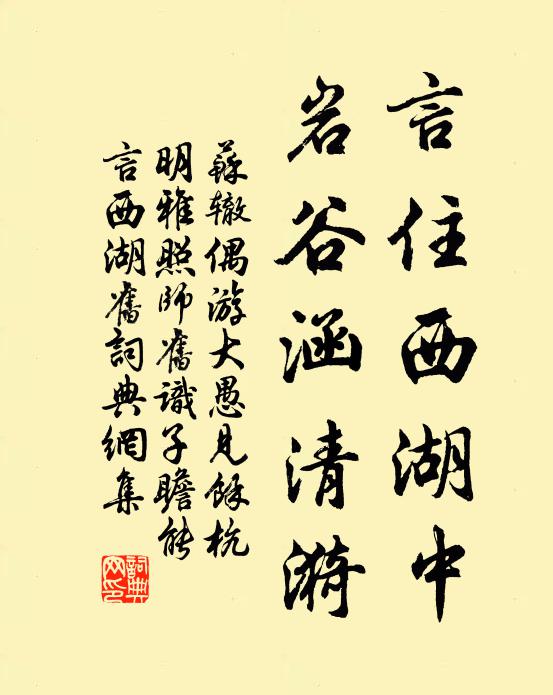 言住西湖中
岩谷涵清漪
蘇辙偶游大愚見餘杭
明雅照師舊識子瞻能
言西湖舊詞典網集
詞典
网印